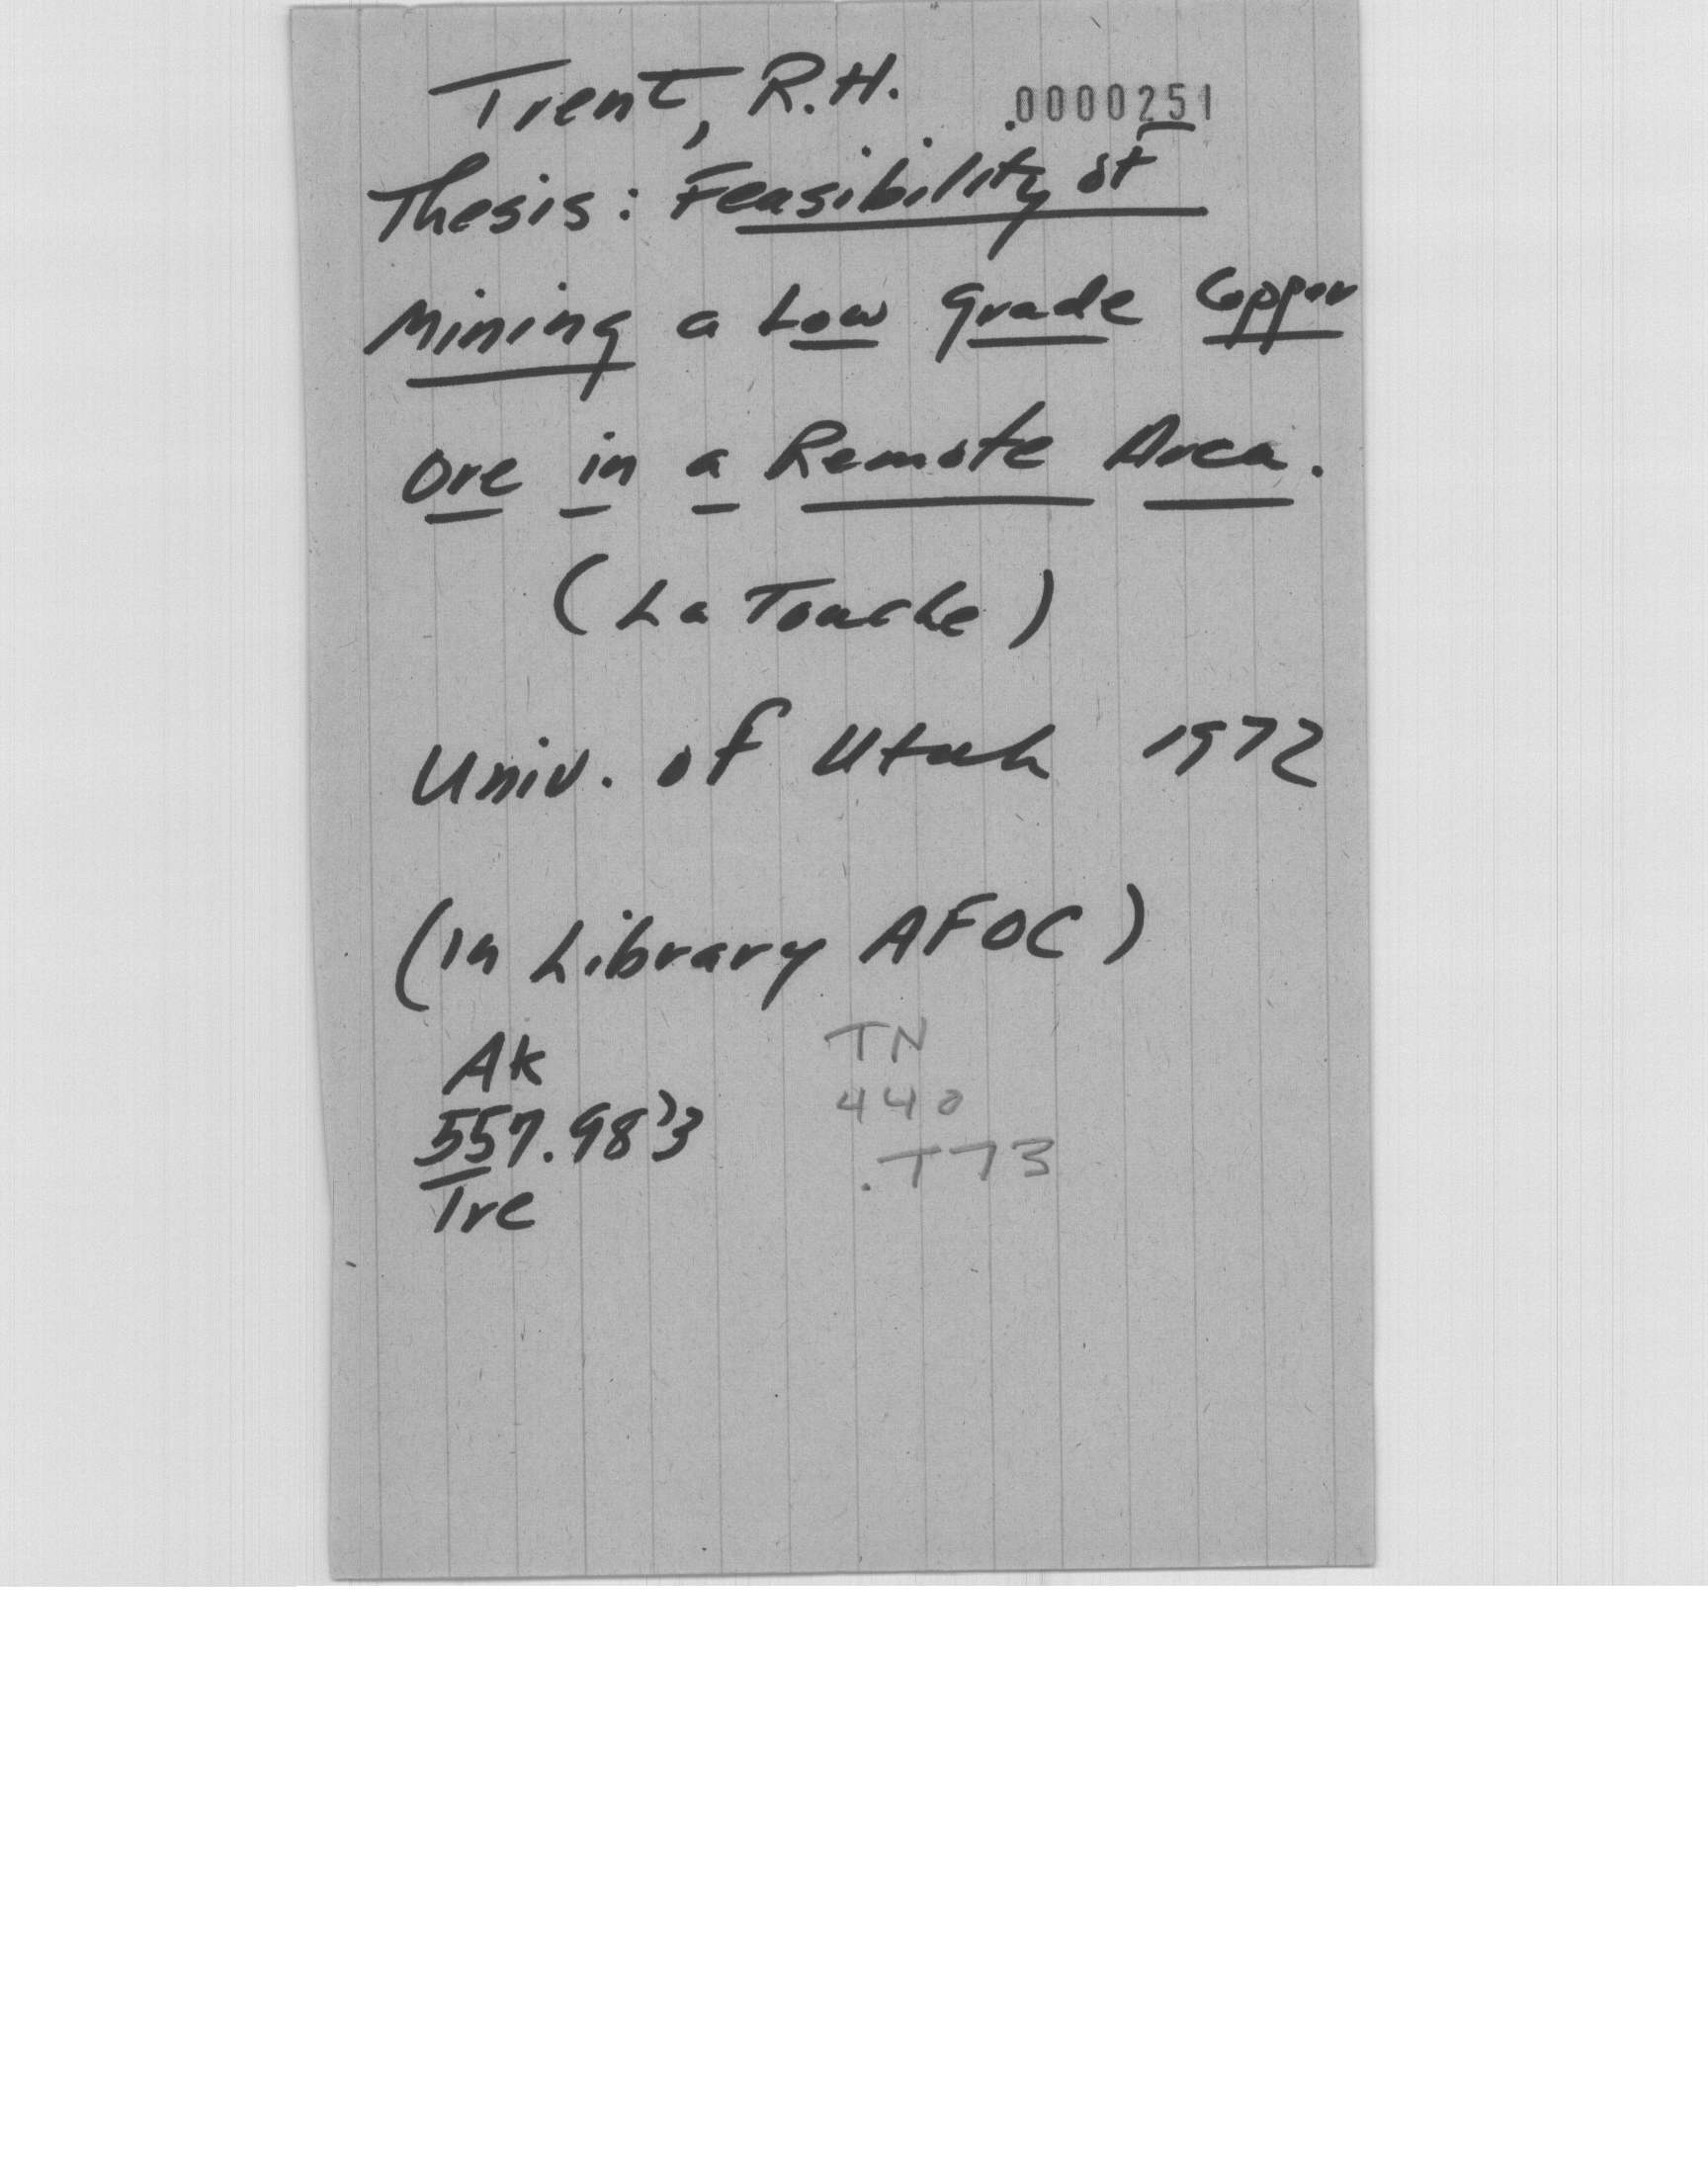 Trent, R.H. .0000251
Thesis: Feasibility of
Mining a Low Grade Copper
Ore in a Remote Area.
(La Touche)
Univ. of Utah 1972
(in Library AFOC)
Ak
557.983
Tre
TN
440
.T73